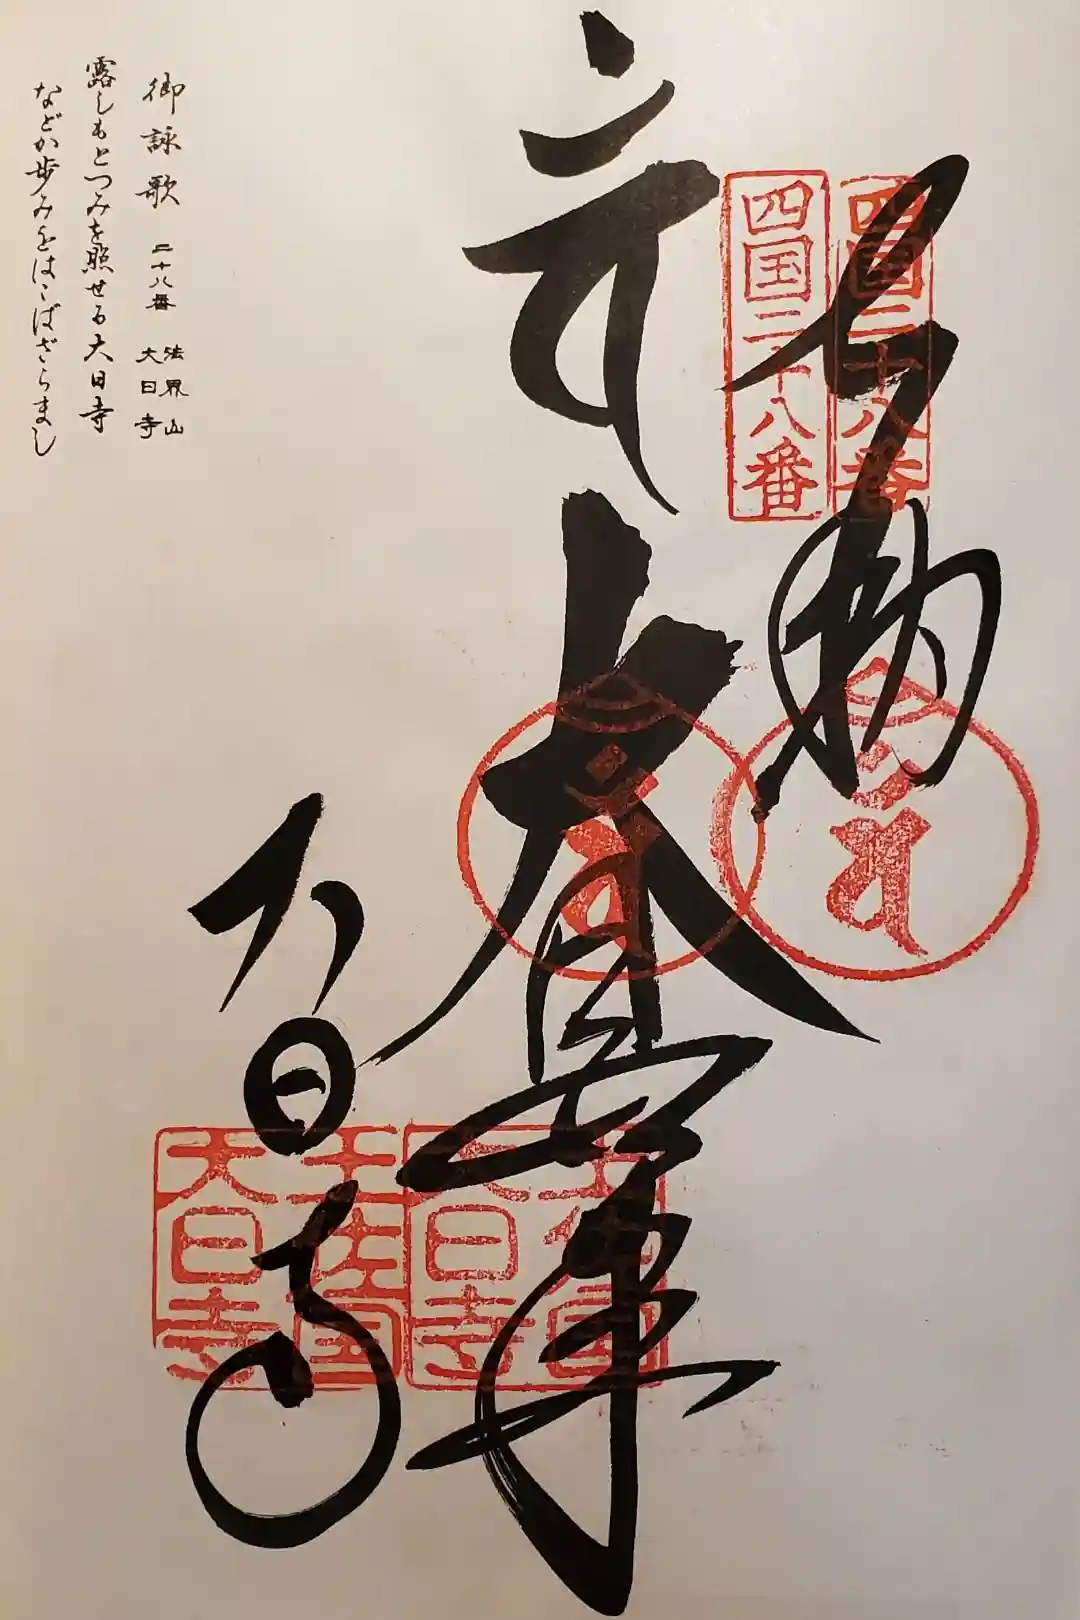 四国二十八番
四国二十八番
奉納
大日
大日寺
土佐国
大日寺
土佐国
大日寺
御詠歌 二十八番 法界山 大日寺
露しもとつみを照せる大日寺
などか歩みをはこばざらまし